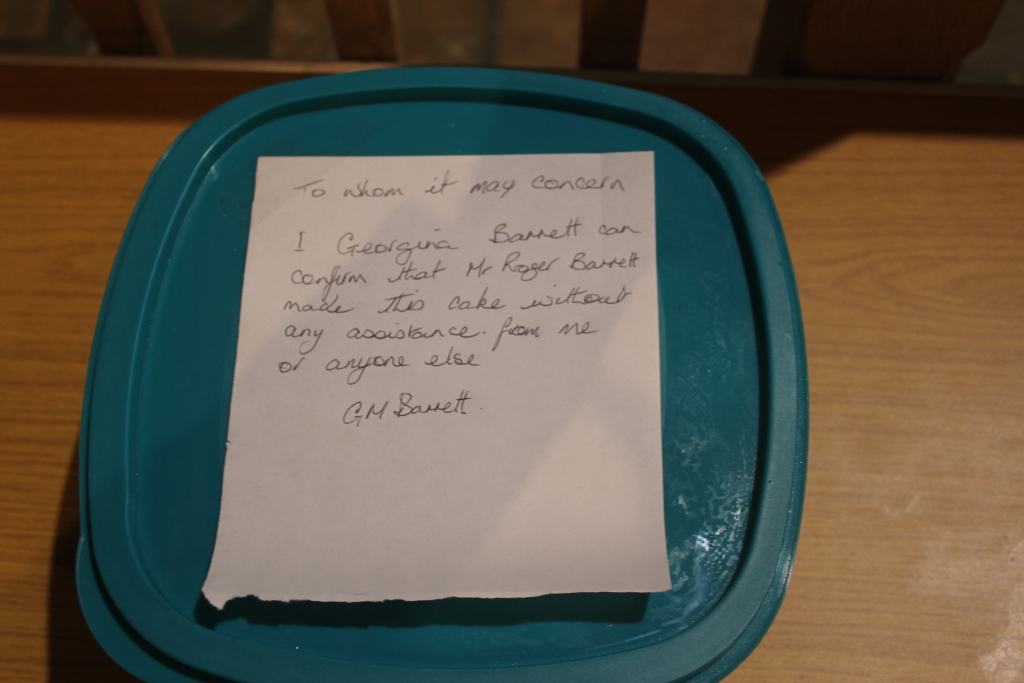 To whom it may concern
I Georgina Barrett can
confirm that Mr Roger Barrett
made this cake without
any assistance. from me
or anyone else
GM Barrett.